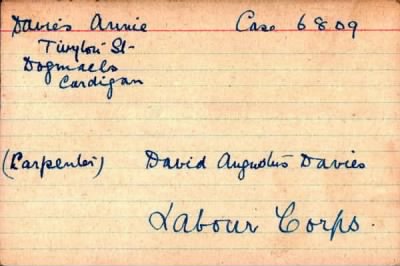 Davies Annie Case 6809
St
Dogmaels
Cardigan
(Carpenter) David Augustus Davies
Labour Corps.